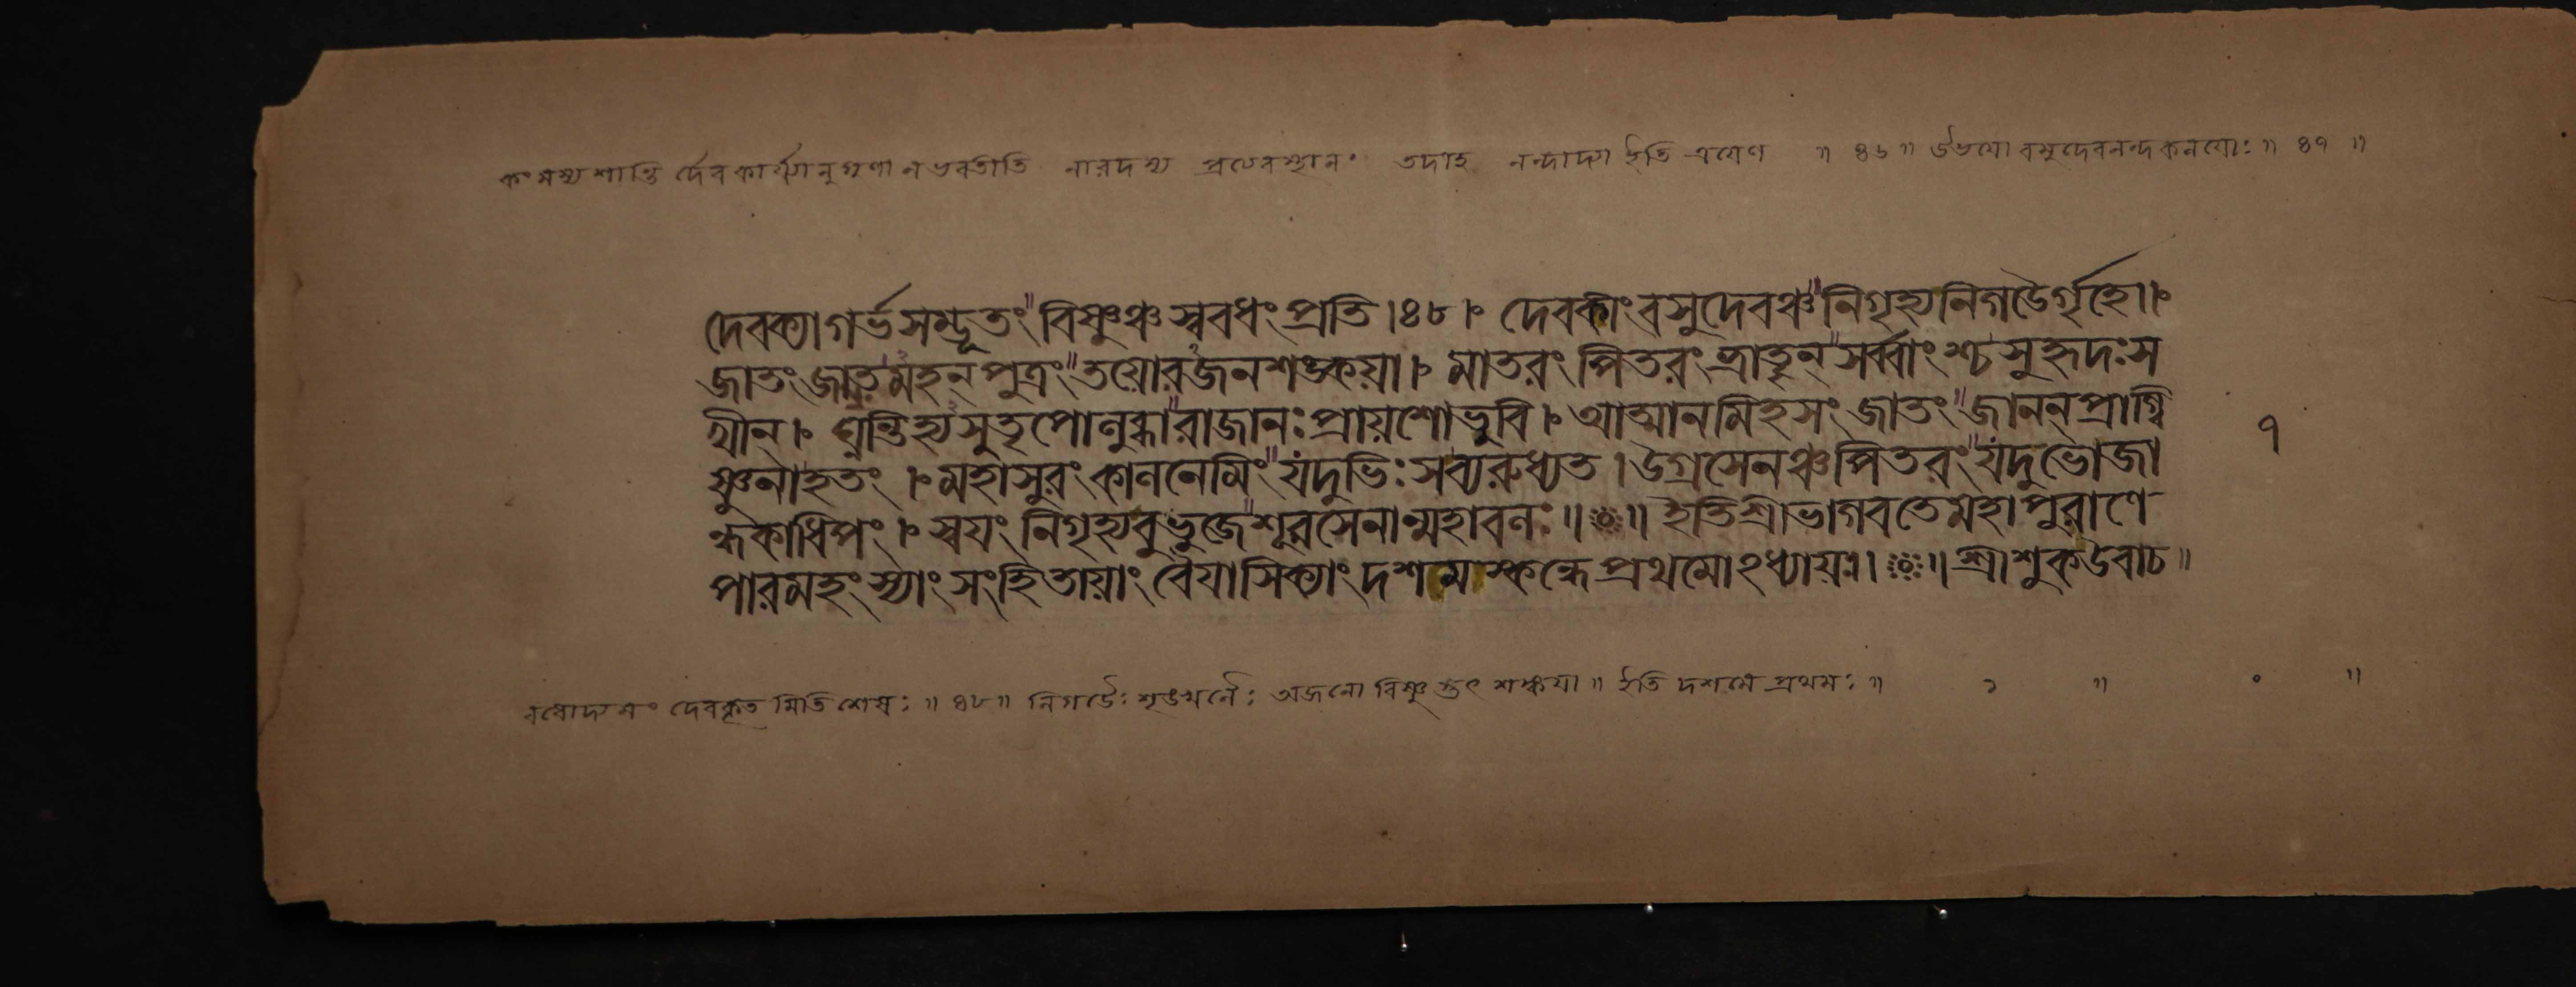 কংসস্য শান্তি র্দেবকার্য্যানুগুণা ন ভবতীতি নারদস্য তদাহ নন্দাদ্যা ইতি ॥ ৪৬ ॥ উভয়ো বসুদেবনন্দকুলয়োঃ ॥ ৪৭ ॥
দেবক্যাগর্ভসম্ভূতং॥বিষ্ণুঞ্চ স্ববধং প্রতি।৪৮। দেবকীং বসুদেবঞ্চ॥নিগৃহ্য নিগডৈর্গৃহে।
জাতং জাতমহন্ পুত্রং॥তয়োরজনশঙ্কয়া। মাতরং পিতরং ভ্রাতৄন্॥সর্ব্বাংশ্চ সুহৃদঃ স
খীন্। ঘ্নন্তি হ্যসুতৃপোলুব্ধা॥রাজানঃ প্রায়শো ভুবি। আত্মানমিহ সং জাতং॥জানন্ প্রাগ্বি
ষ্ণুনা হতং । মহাসুরং কালনেমিং॥যদুভিঃ স ব্যরুধ্যত । উগ্রসেনঞ্চ পিতরং॥যদুভোজা
ন্ধকাধিপং । স্বয়ং নিগৃহ্য বুভুজে॥শূরসেনান্মহাবলঃ ॥ ০ ॥ ইতি শ্রীভাগবতে মহাপুরাণে
পারমহংস্যাং সংহিতায়াং বৈয়াসিক্যাং দশমস্কন্ধে প্রথমোঽধ্যায়ঃ । ০ ॥ শ্রীশুকউবাচ ॥
১
বধোদ্যমং দেবকৃত মিতি শেষঃ ॥ ৪৮ ॥ নিগডৈঃ শৃঙ্খলৈঃ অজনো বিষ্ণু স্তৎ শঙ্কয়া ॥ ইতি দশমে প্রথমঃ ॥ ১ ॥ ० ॥